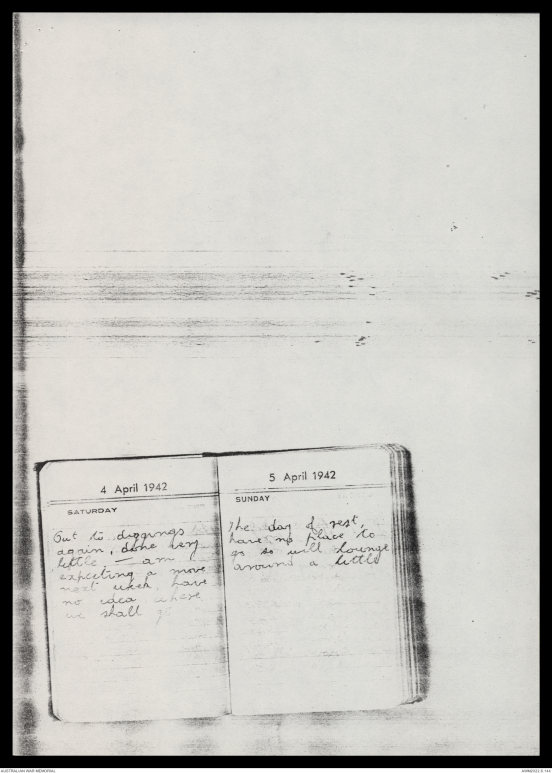 4 April 1942
SATURDAY
Out to diggings
again, done very
little — am
expecting a move
next week, have
no idea where
we shall go
5 April 1942
SUNDAY
The day of rest,
have no place to
go so will lounge
around a little
AUSTRALIAN WAR MEMORIAL